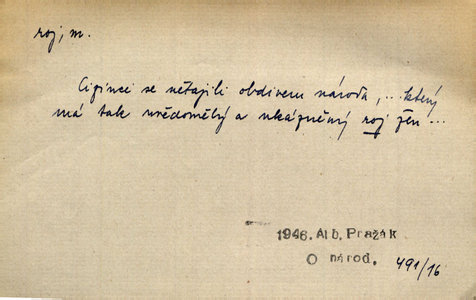 roj, m.
Cizinci se netajili obdivem národa, .. který
má tak uvědomělý a ukázněný roj žen ...
1946. Alb. Pražák
O národ.
491/16